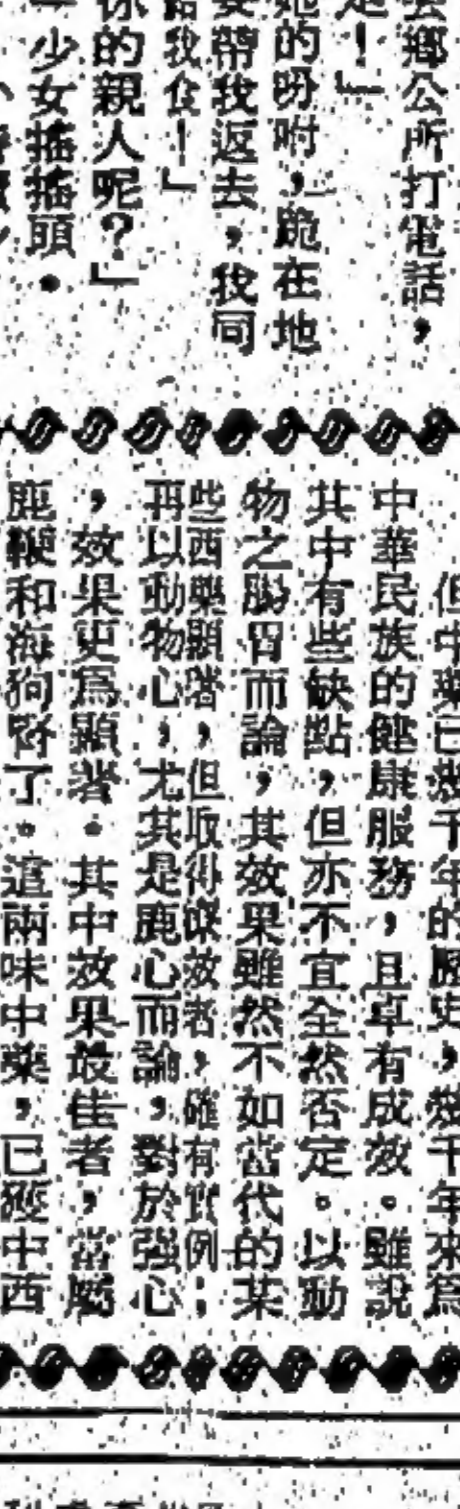 去鄉公所打電話，
走！」
她的吩咐，跪在地
要帶我返去，我同
給我食！」
你的親人呢？」
少女搖搖頭．
但中藥已幾千年的歷史，幾千年來爲
中華民族的健康服務，且卓有成效。雖說
其中有些缺點，但亦不宜全然否定。以動
物之腸胃而論，其效果雖然不如當代的某
些西藥顯著，但取得療效者，確有實例；
再以動物心，尤其是鹿心而論，對於強心
，效果更爲顯著。其中效果最佳者，當屬
鹿鞭和海狗腎了。這兩味中藥，已經中西